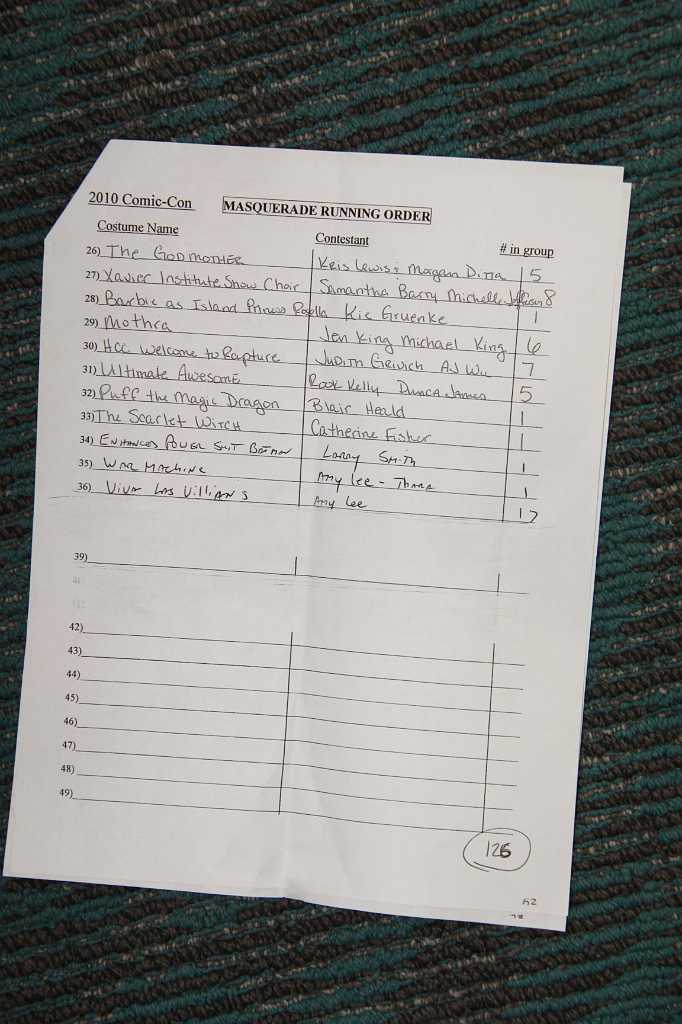 2010 Comic-Con MASQUERADE RUNNING ORDER
Costume Name Contestant # in group
26) The GODMOTHER Kris Lewis; Morgan 5
27) Xavier Institute Show Choir Samantha Barry Michelle 8
28) Barbie as Island Princess Rosella Kic Gruenke 1
29) Mothra Jen King Michael King 6
30) HCC Welcome to Rapture Judith AJ Wu 7
31) Ultimate Awesome Rook Kelly James 5
32) Puff the Magic Dragon Blair Heald 1
33) The Scarlet Witch Catherine Fisher 1
34) ENHANCED POWER SUIT BATMAN Larry Smith 1
35) WAR MACHINE Amy Lee - 1
36) VIVA LAS VILLIANS Amy Lee 17
39)
42)
43)
44)
45)
46)
47)
48)
49)
126